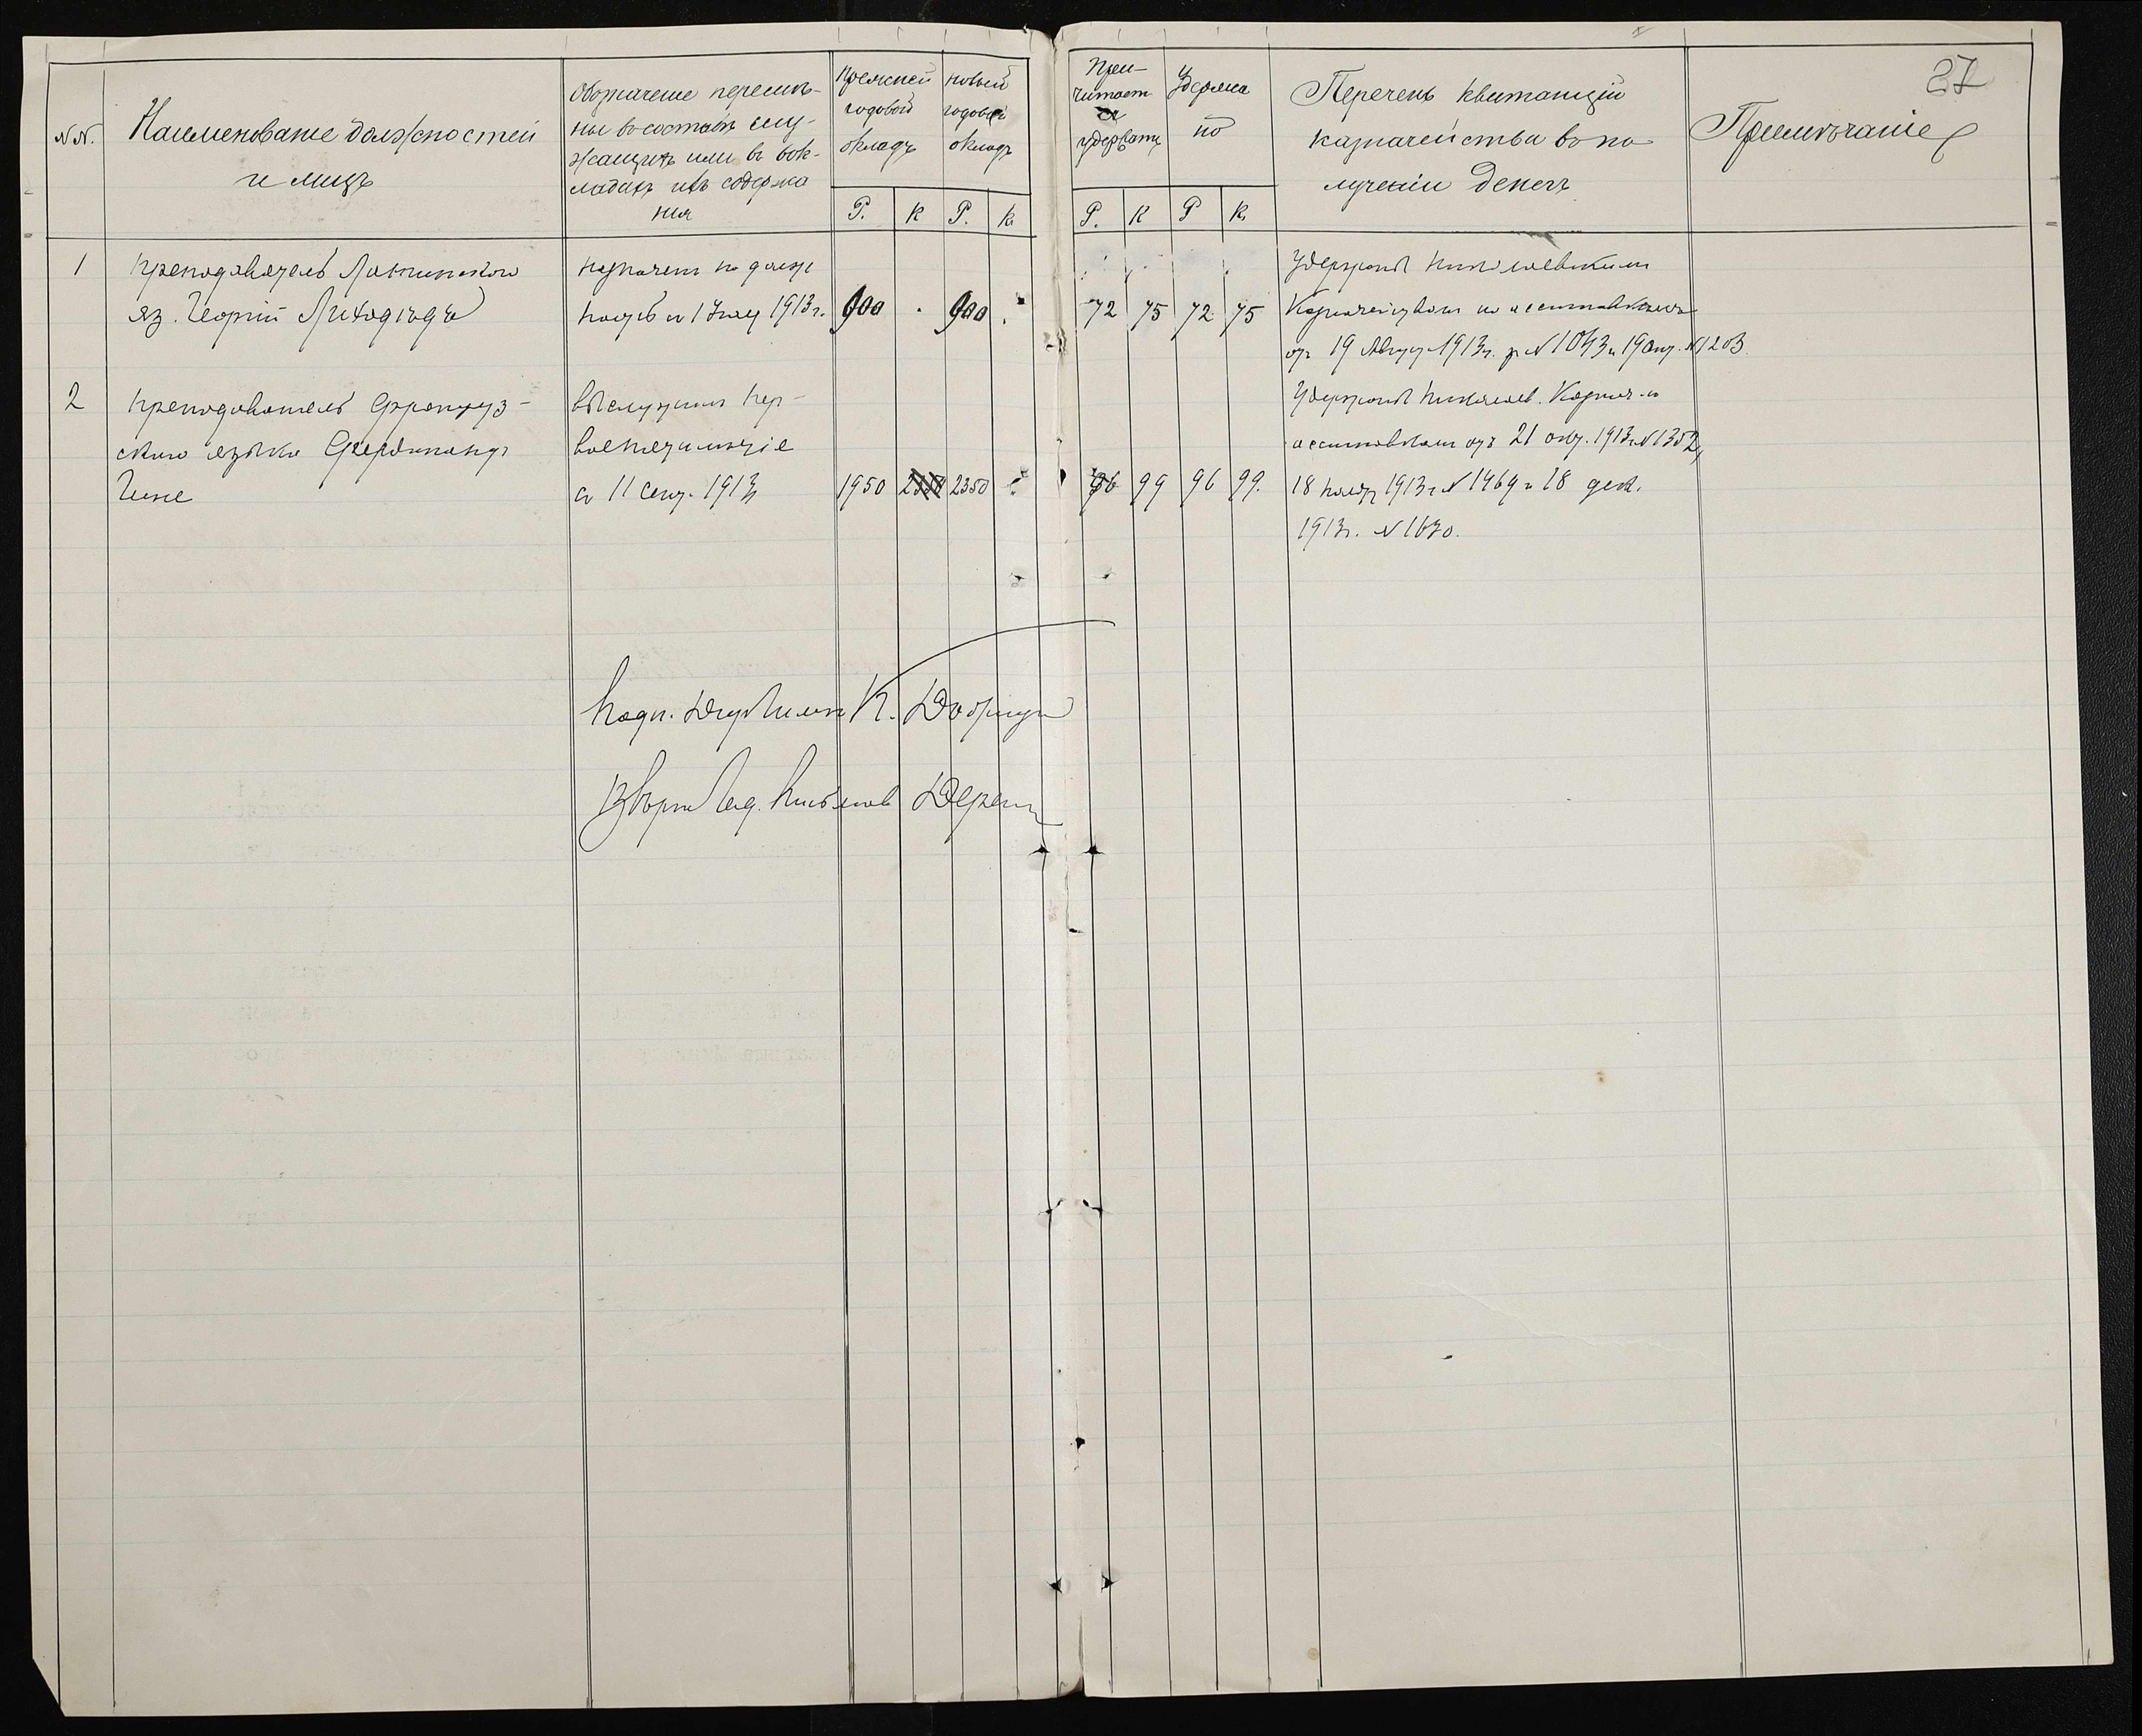 37
№№.
Наименованіе должностей
и лицъ
Обозначеніе перемѣ-
ны въ составѣ слу-
жащихъ или въ ок-
ладахъ ихъ содержа
нія
Прежній
годовой
окладъ
Новый
годовой
окладъ
При-
читает
ся
удержать
Удержа
но
Перечень квитанцій
казначейства въ по
лученіи денегъ
Примѣчаніе
Р. К Р. К.
Р. К Р К.
1
Преподаватель Латинского
яз. Георгій Лиходѣдъ
назначен на долж
ность с 1 Іюля 1913 г.
900 . 900 .
72 75 72 75
Удержаны Николаевским
Казначейством по ассигновкам
от 19 Август 1913 г. за № 1043 и 19 окт. № 1203.
2
Преподаватель француз-
ского языка Фердинандъ
Гине
выслужил пер-
вое пятилѣтіе
с 11 сент. 1913
1950 2350
96 99 96 99.
Удержаны Николаев. Казнач. по
ассигновкам отъ 21 окт. 1913 г. № 1352,
18 нояб. 1913 г. № 1469 и 18 дек.
1913 г. № 1630.
Подп. К.